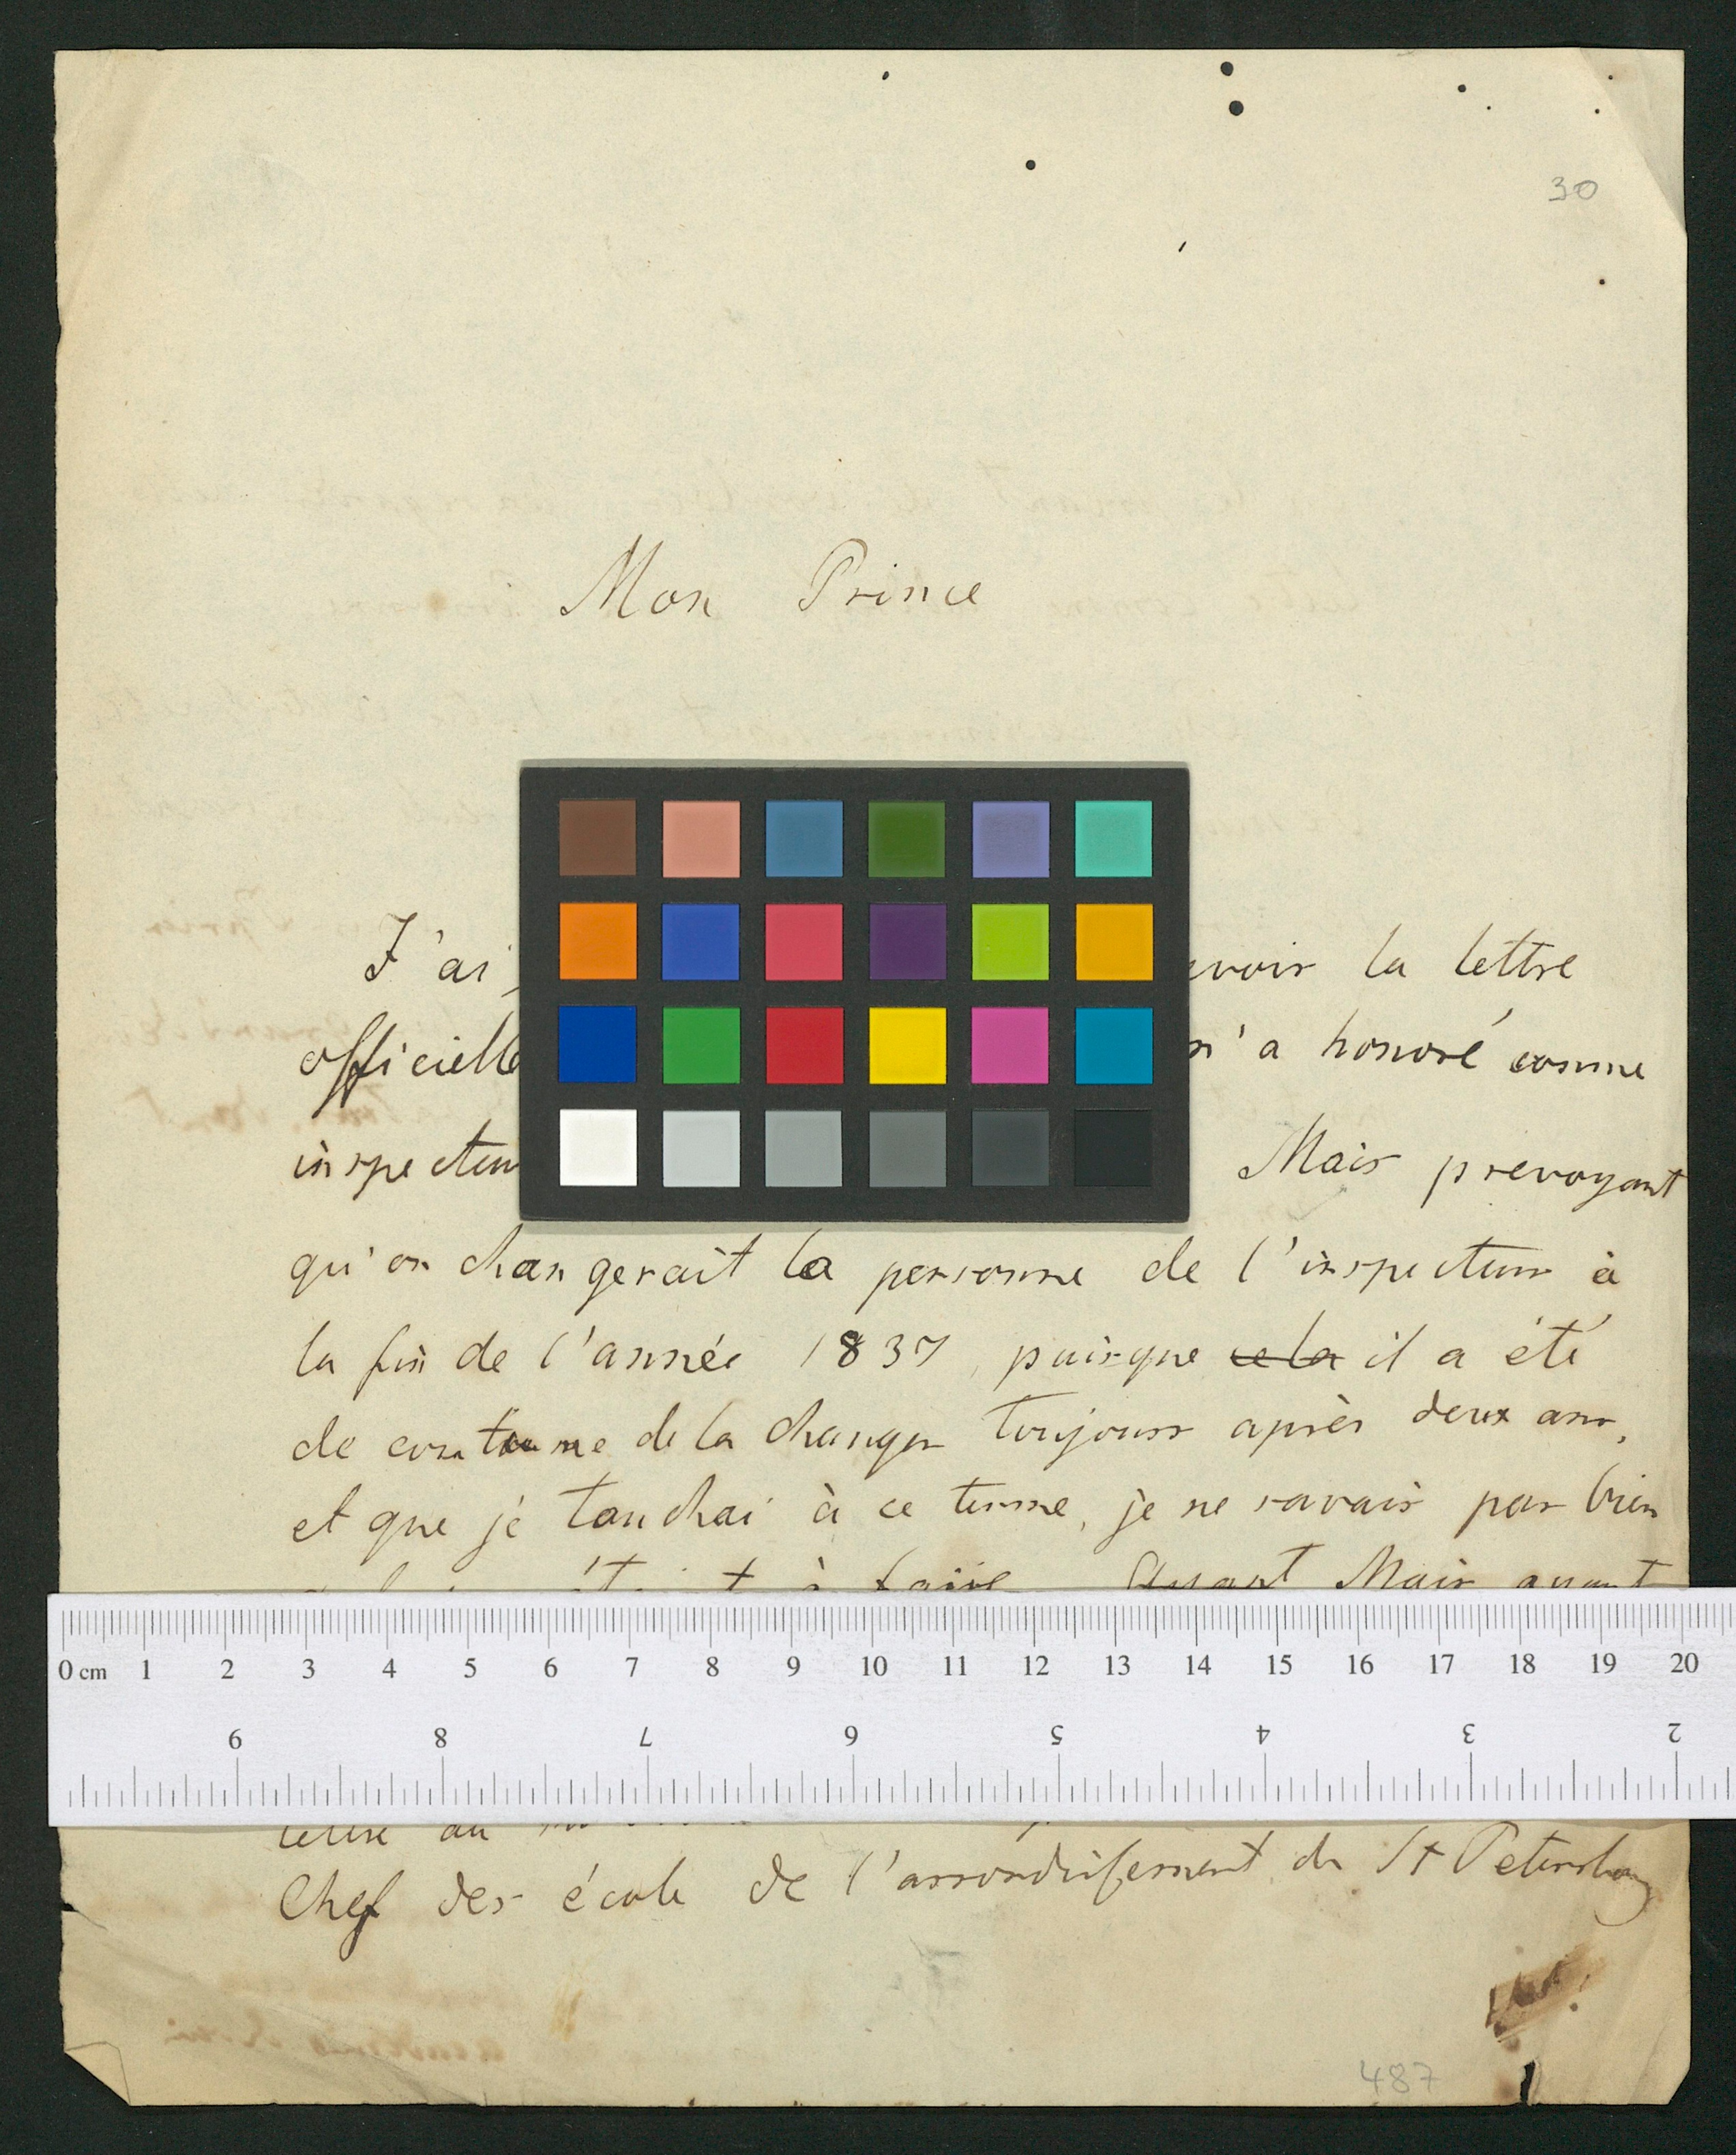 30
Mon Prince
J'ai
voir la lettre
officielle
m'a honoré comme
inspecteur
Mais prevoyant
qu'on changerait la personne de l'inspecteur à
la fin de l'année 1837, puisque cela il a été
de coutume de la changer toujours après deux ans,
et que je touchai à ce terme, je ne savais pas bien
à faire Ayant Mais ayant
0 cm 1 2 3 4 5 6 7 8 9 10 11 12 13 14 15 16 17 18 19 20
9 8 7 6 5 4 3 2
lettre du
Chef des école de l'arrondissement de St Petersbourg
487